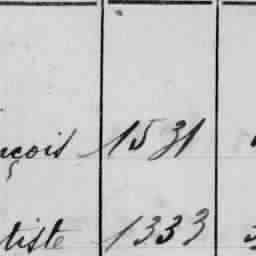 nçois 1531
tiste 1333